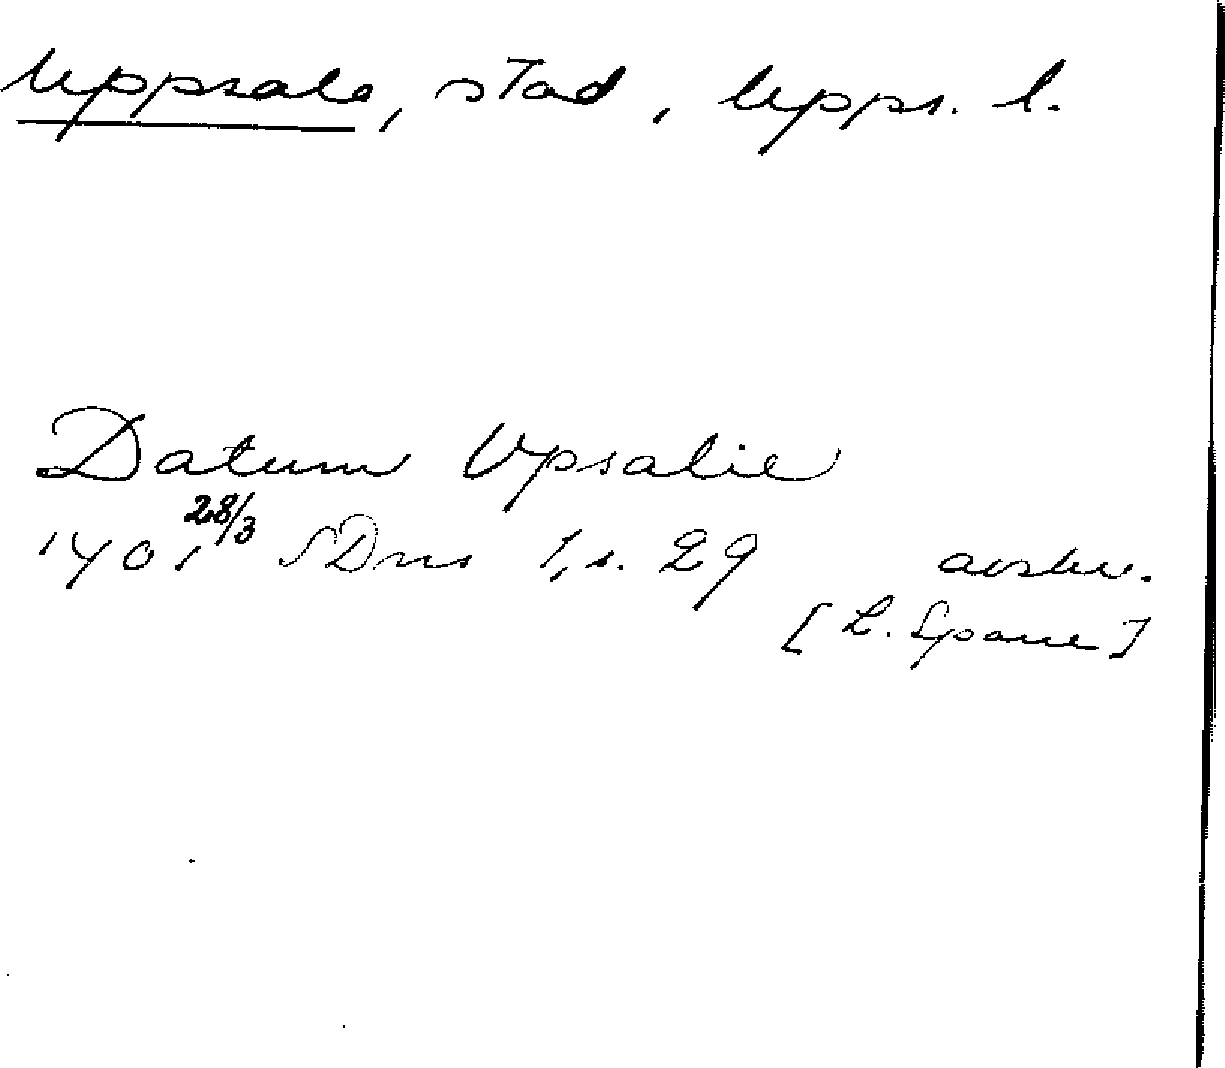 Uppsala, stad, Upps. l.
Datum Vpsalie
1401 28/3 SDns 1, s. 29 avskr.
[L. Spane]